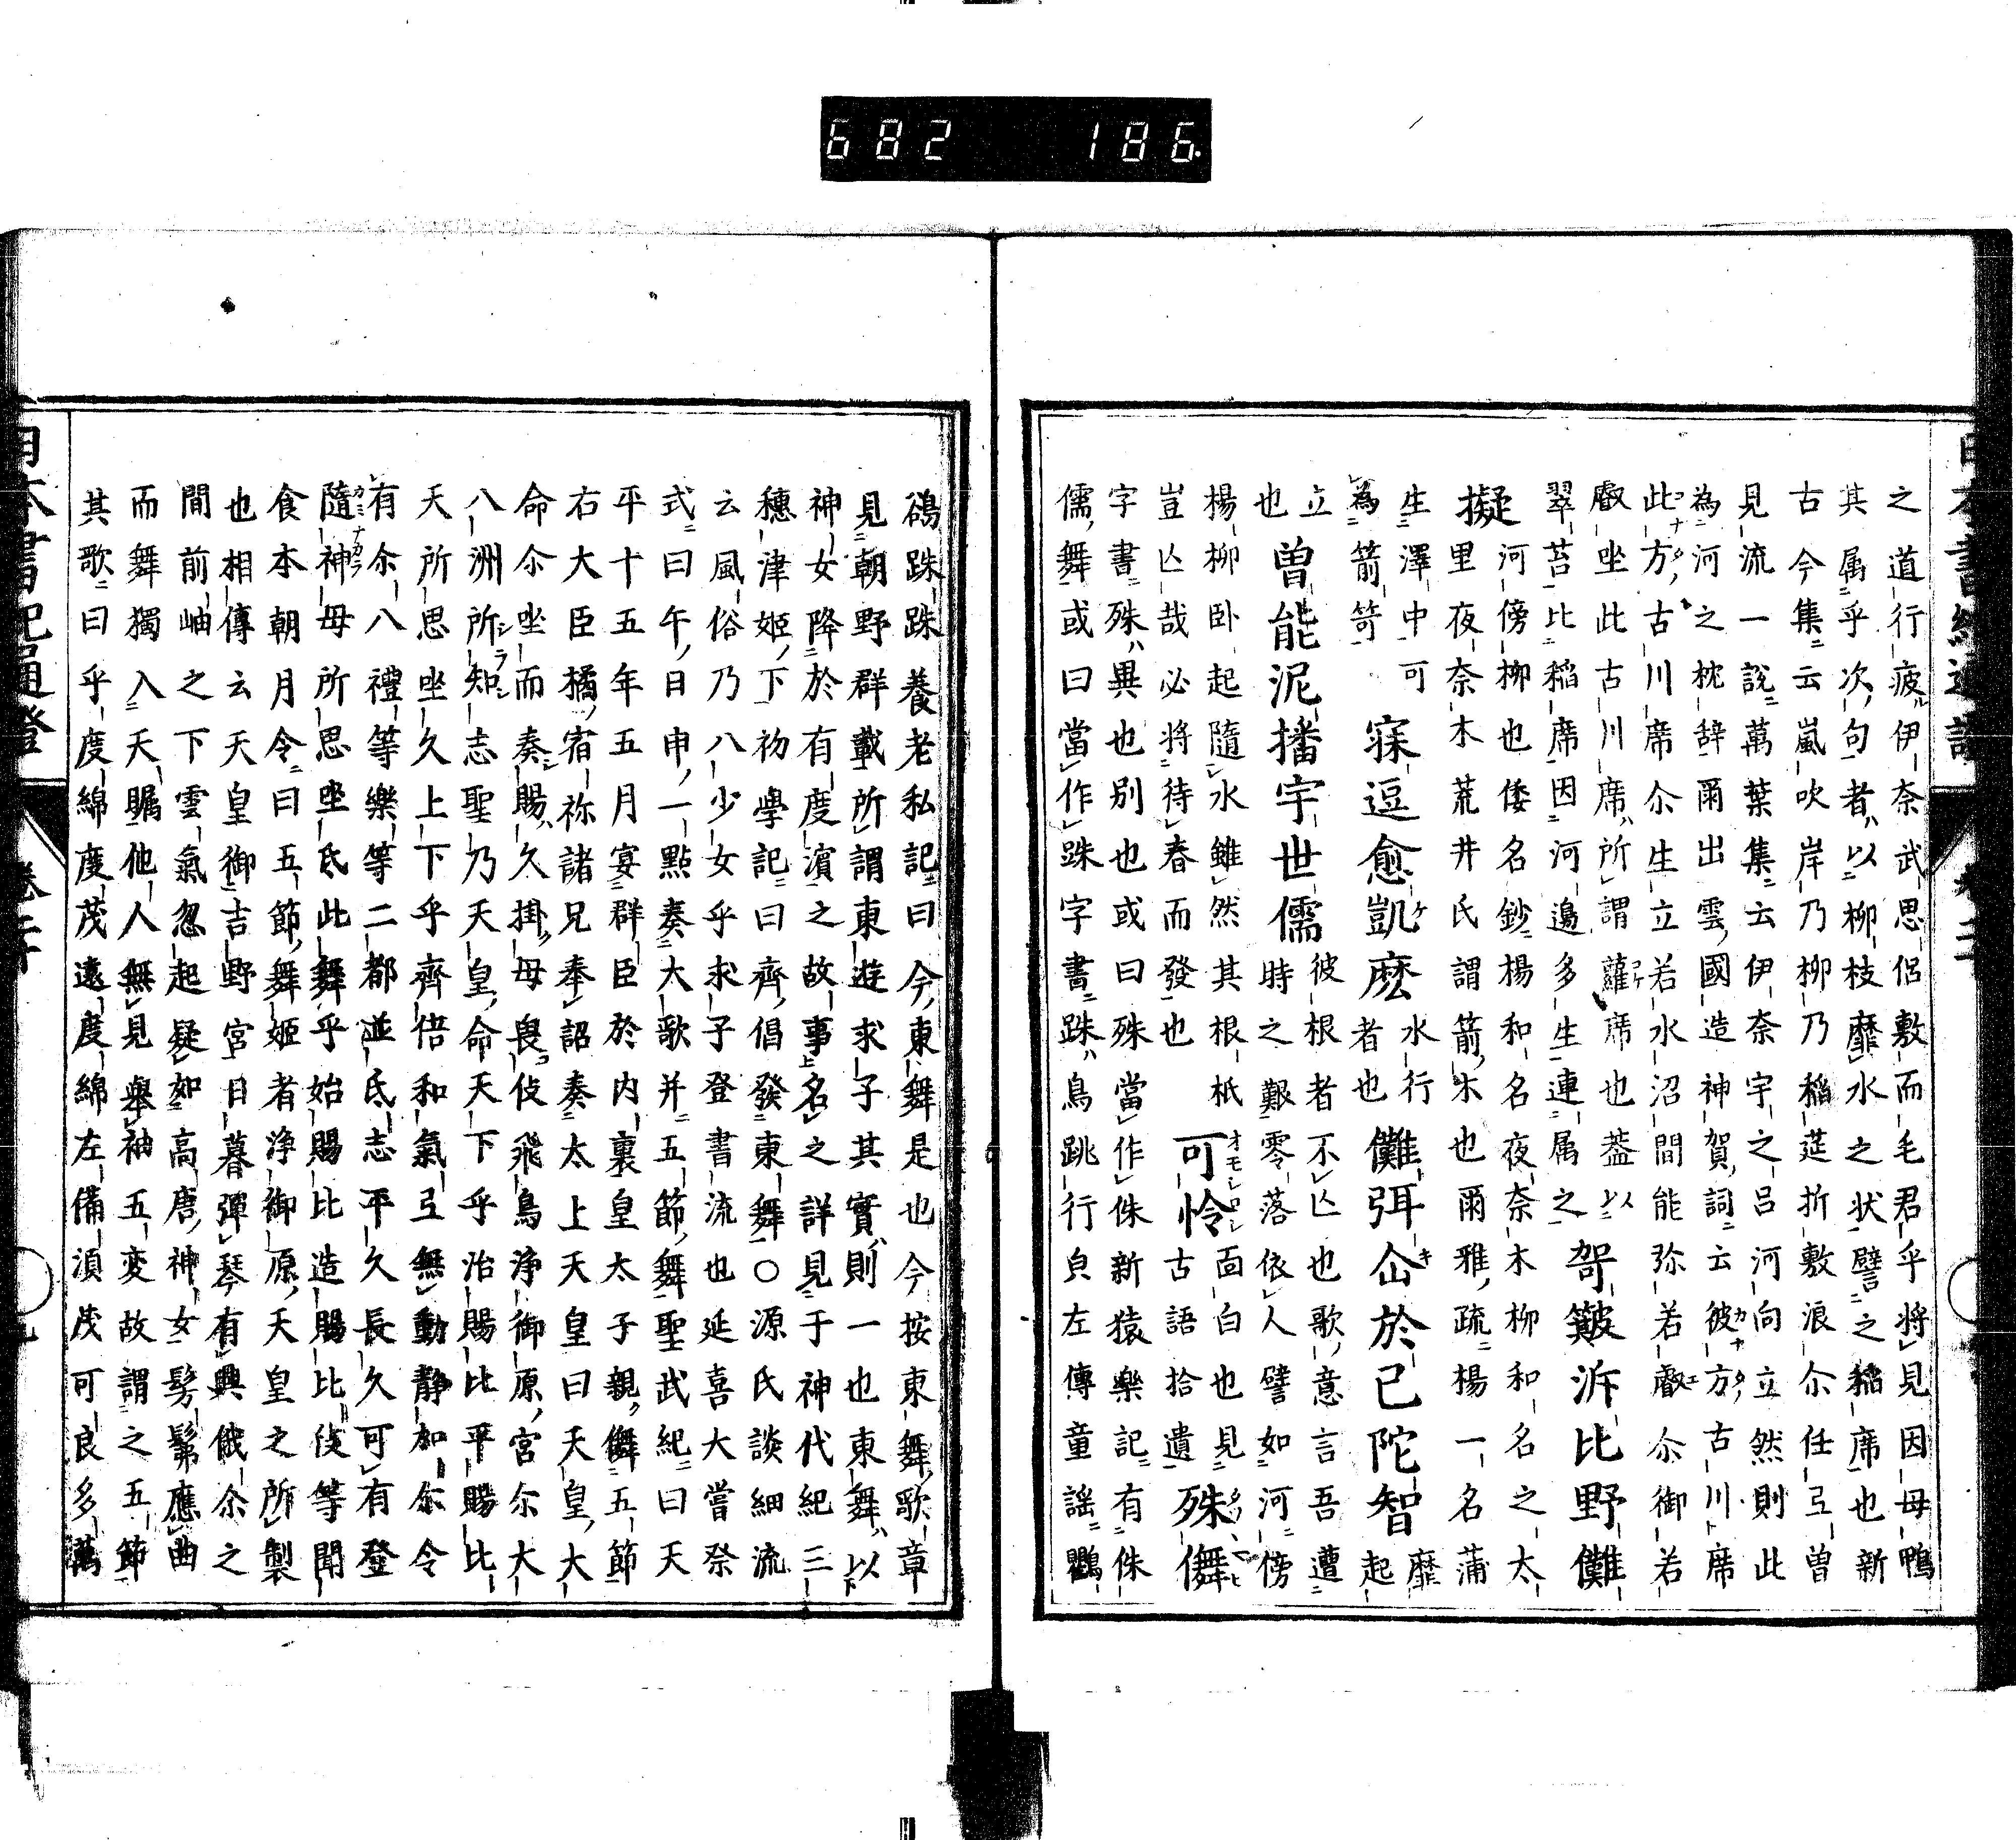 682 186
之道行疲伊奈武思侶敷而毛君乎將見因母鴨
其属乎次句者以柳枝靡水之状譬之稲席也新
古今集云嵐吹岸乃柳乃稲莚折敷浪尒任弖曽
見流一說萬葉集云伊奈宇之呂河向立然則此
為河之枕辞爾出雲國造神賀詞云彼方古川席
此方古川席尒生立若水沼間能弥若叡尒御若
叡坐此古川席所謂蘿席也蓋以
翠苔比稲席因河邉多生連属之
哿簸泝比野儺
擬
河傍柳也倭名鈔楊和名夜奈木柳和名之太
里夜奈木荒井氏謂箭木也爾雅疏楊一名蒲
生澤中可
為箭笴
寐逗愈凱麽
水行
者也
儺弭企於已陀智
靡
起
立
也
曽能泥播宇世儒
彼根者不亾也歌意言吾遭
時之艱零落依人譬如河傍
楊柳卧起隨水雖然其根柢
豈亾哉必將待春而發也
可怜
オモシロシ
面白也見
古語拾遺
殊儛
字書殊異也別也或曰殊當作侏新猿樂記有侏
儒舞或曰當作跦字書跦鳥跳行貞左傳童謡鸜
鵒跦跦養老私記曰今東舞是也今按東舞歌章
見朝野群載所謂東遊求子其實則一也東舞以
神女降於有度濵之故事名之詳見于神代紀三
穗津姬下初學記曰齊倡發東舞○源氏談細流
云風俗乃八少女乎求子登書流也延喜大嘗祭
式曰午日申一點奏大歌并五節舞聖武紀曰天
平十五年五月宴群臣於内裏皇太子親儛五節
右大臣橘宿祢諸兄奉詔奏太上天皇曰天皇大
命尒坐而奏賜久掛母畏伎飛鳥浄御原宮尒大
八洲所知志聖乃天皇命天下乎治賜比平賜比
天所思坐久上下乎齊倍和氣弖無動静加尒令
有尒八禮等樂等二都並氐志平久長久可有登
隨神母所思坐氐此舞乎始賜比造賜比伎等聞
食本朝月令曰五節舞姬者浄御原天皇之所製
也相傳云天皇御吉野宮日暮彈琴有興俄尒之
間前岫之下雲氣忽起疑如高唐神女髣髴應曲
而舞獨入天矚他人無見舉袖五変故謂之五節
其歌曰乎度綿度茂遠度綿左備湏茂可良多萬
日本書紀通證